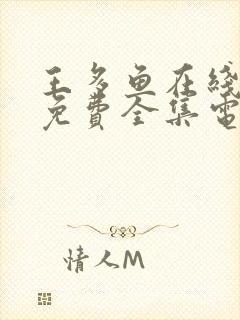 王多鱼在线
免費全集電
情人M